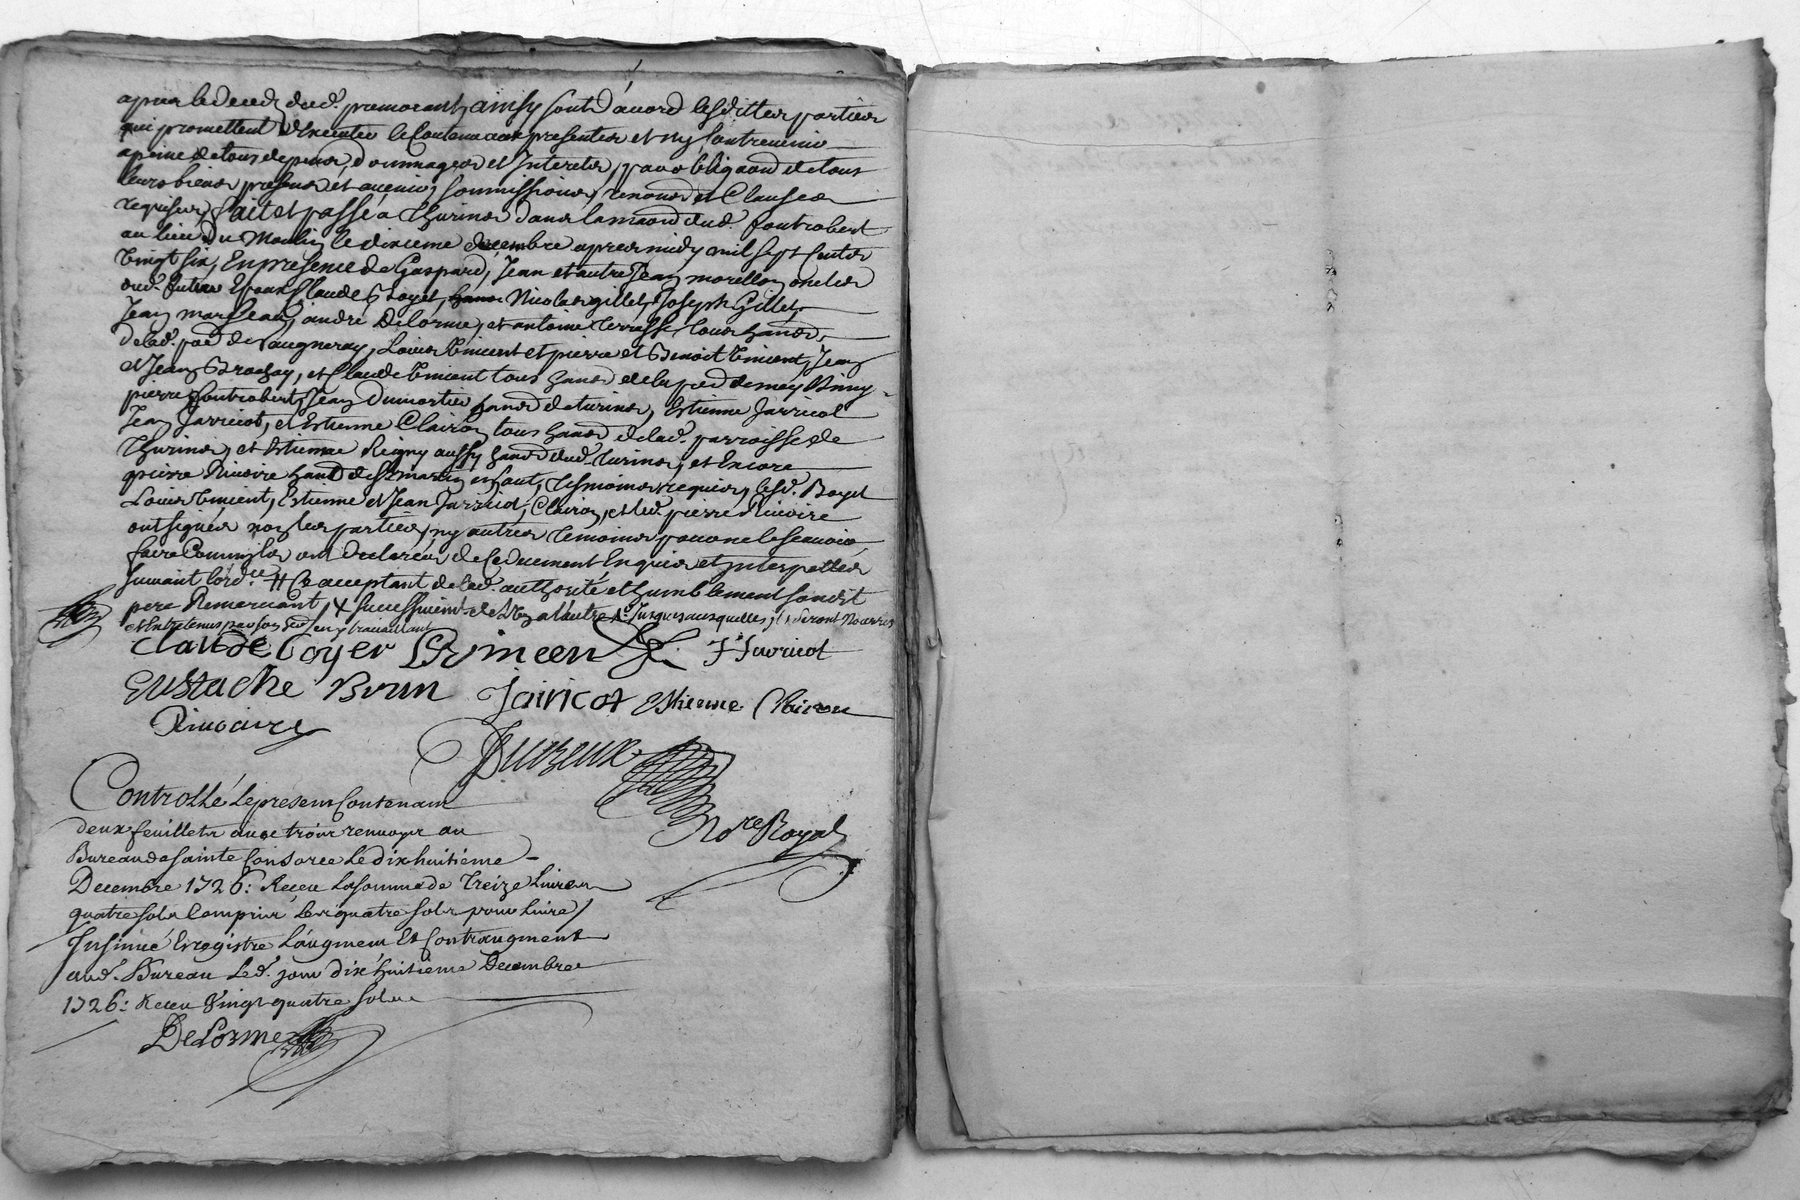 apres le deceds dud. premourant, ainsy sont d'acord lesdittes parties
qui promettent d'executer le contenu aux presentes et ny contrevenir
a peine de tous depens, dommages et Interets, par obligaõn de tous
leurs biens presens et avenir, soumissions, renonõns et Clauses
requises, fait et passé a Thurins dans la maõn dud. fontrobert
au lieu du Moulin le dixième decembre apres midy mil sept cents
vingt six, En presence de Gaspard, Jean et autre Jean morellon oncles
dud. futur Epoux, Claude Boyet, Nicolas gillet, Joseph Gillet,
Jean marseau, andré Delorme, et antoine terrasse tous habs,
de lad. par. de Vaugneray, Louis Vincent et pierre et Benoit Vincent, Jean
et Jean Brochay, et Claude Vincent tous habs de la par. de
pierre fontrobert, Jean Dumortier habs de turins, Estienne Jarricot
Jean Jarricot, et Estienne Clairon tous habs de lad. parroisse de
Thurins, et Estienne aussy habs dud. turins, et Encore
pierre Rivoire habt de St martin en haut, tesmoins requis, led. Boyet
Louis Vincent, Estienne et Jean Jarricot, Clairon, et led. pierre Rivoire
ont signés non les parties, ny autres temoins pour ne le scavoir
faire Comm'ils ont declarés de ce duement Enquis et Interpellés
suivant l'ord.ce # Ce acceptant de lad. authorité et humblement sondit
pere Remerciant, X successivement de l'un a l'autre jusques auxquelles, ils seront Nourris
et Entretenus par son en y travaillant
Claude Boyer L Vincent J Jarricot
Eustache Brun Jairicot Estienne Clairon
Rivoaire
Duvzeux
No.re Royal
Controllé Le present Contenant
deux feuillets avec trois renvoys au
Bureau de Sainte Consorce Le dix huitième
Decembre 1726: Receu La somme de Treize Livres
quatre sols Compris Les quatre sols pour Livre
Insinué Enregistré L'augment Et Contraugment
aud. Bureau Led. jour dix huitieme Decembre
1726: Receu Vingt quatre sols
DeLorme